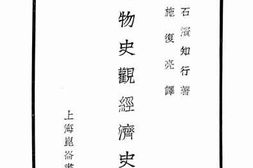 石濱知行著
施復亮譯
物史觀經濟史
上海崑崙書